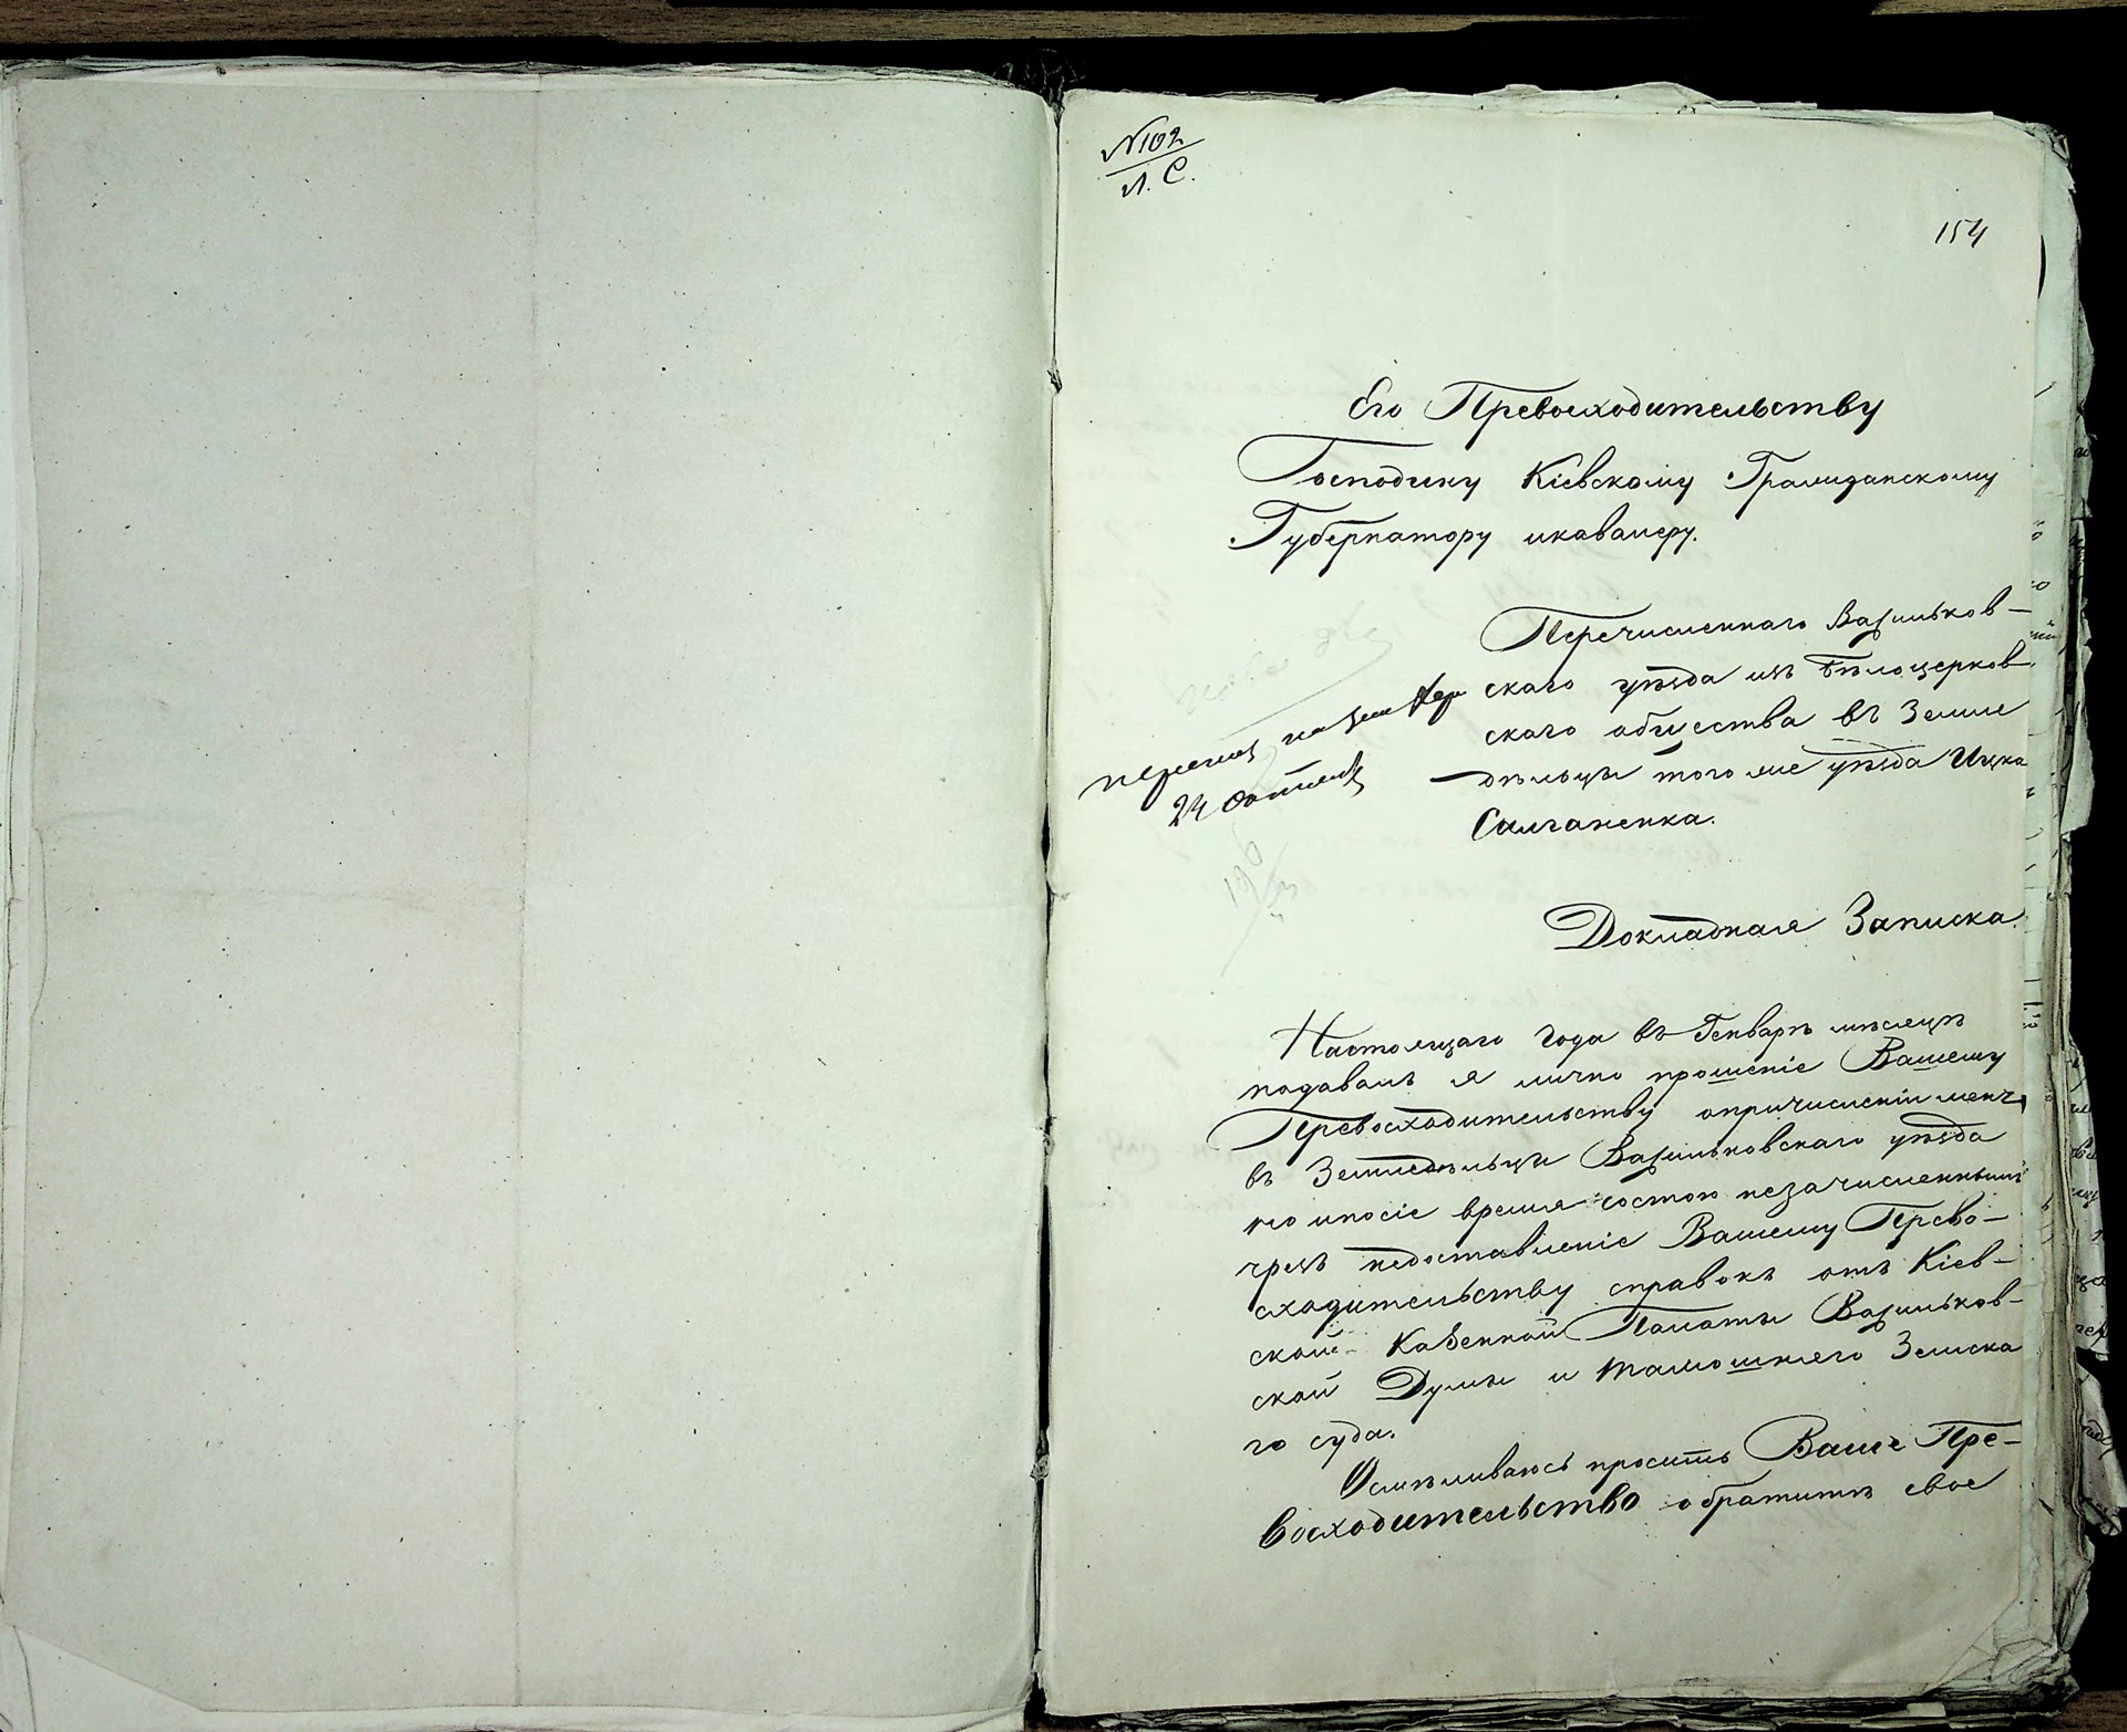 №102
Л. С.
154
Его Превосходительству
Господину Кіевскому Гражданскому
Губернатору икавалеру.
Перечисленнаго Васильков-
скаго уѣзда изъ Бѣлоцерков
скаго общества въ Земле
дѣльцы того же уѣзда Ицка
Салганенка.
24
Докладная Записка.
Настоящаго года въ Генварѣ мѣсяцѣ
подавалъ я лично прошеніе Вашему
Превосходительству опричисленіи меня
въ Земледѣльцы Васильковскаго уѣзда
но ипосіе время состою незачисленнымъ
чрезъ недоставленіе Вашему Прево-
сходительству справокъ отъ Кіев-
ской Казенной Палаты Васильков-
ской Думы и тамошняго Земска
го суда.
Осмѣливаюсь просить Ваше Пре-
восходительство обратить свое